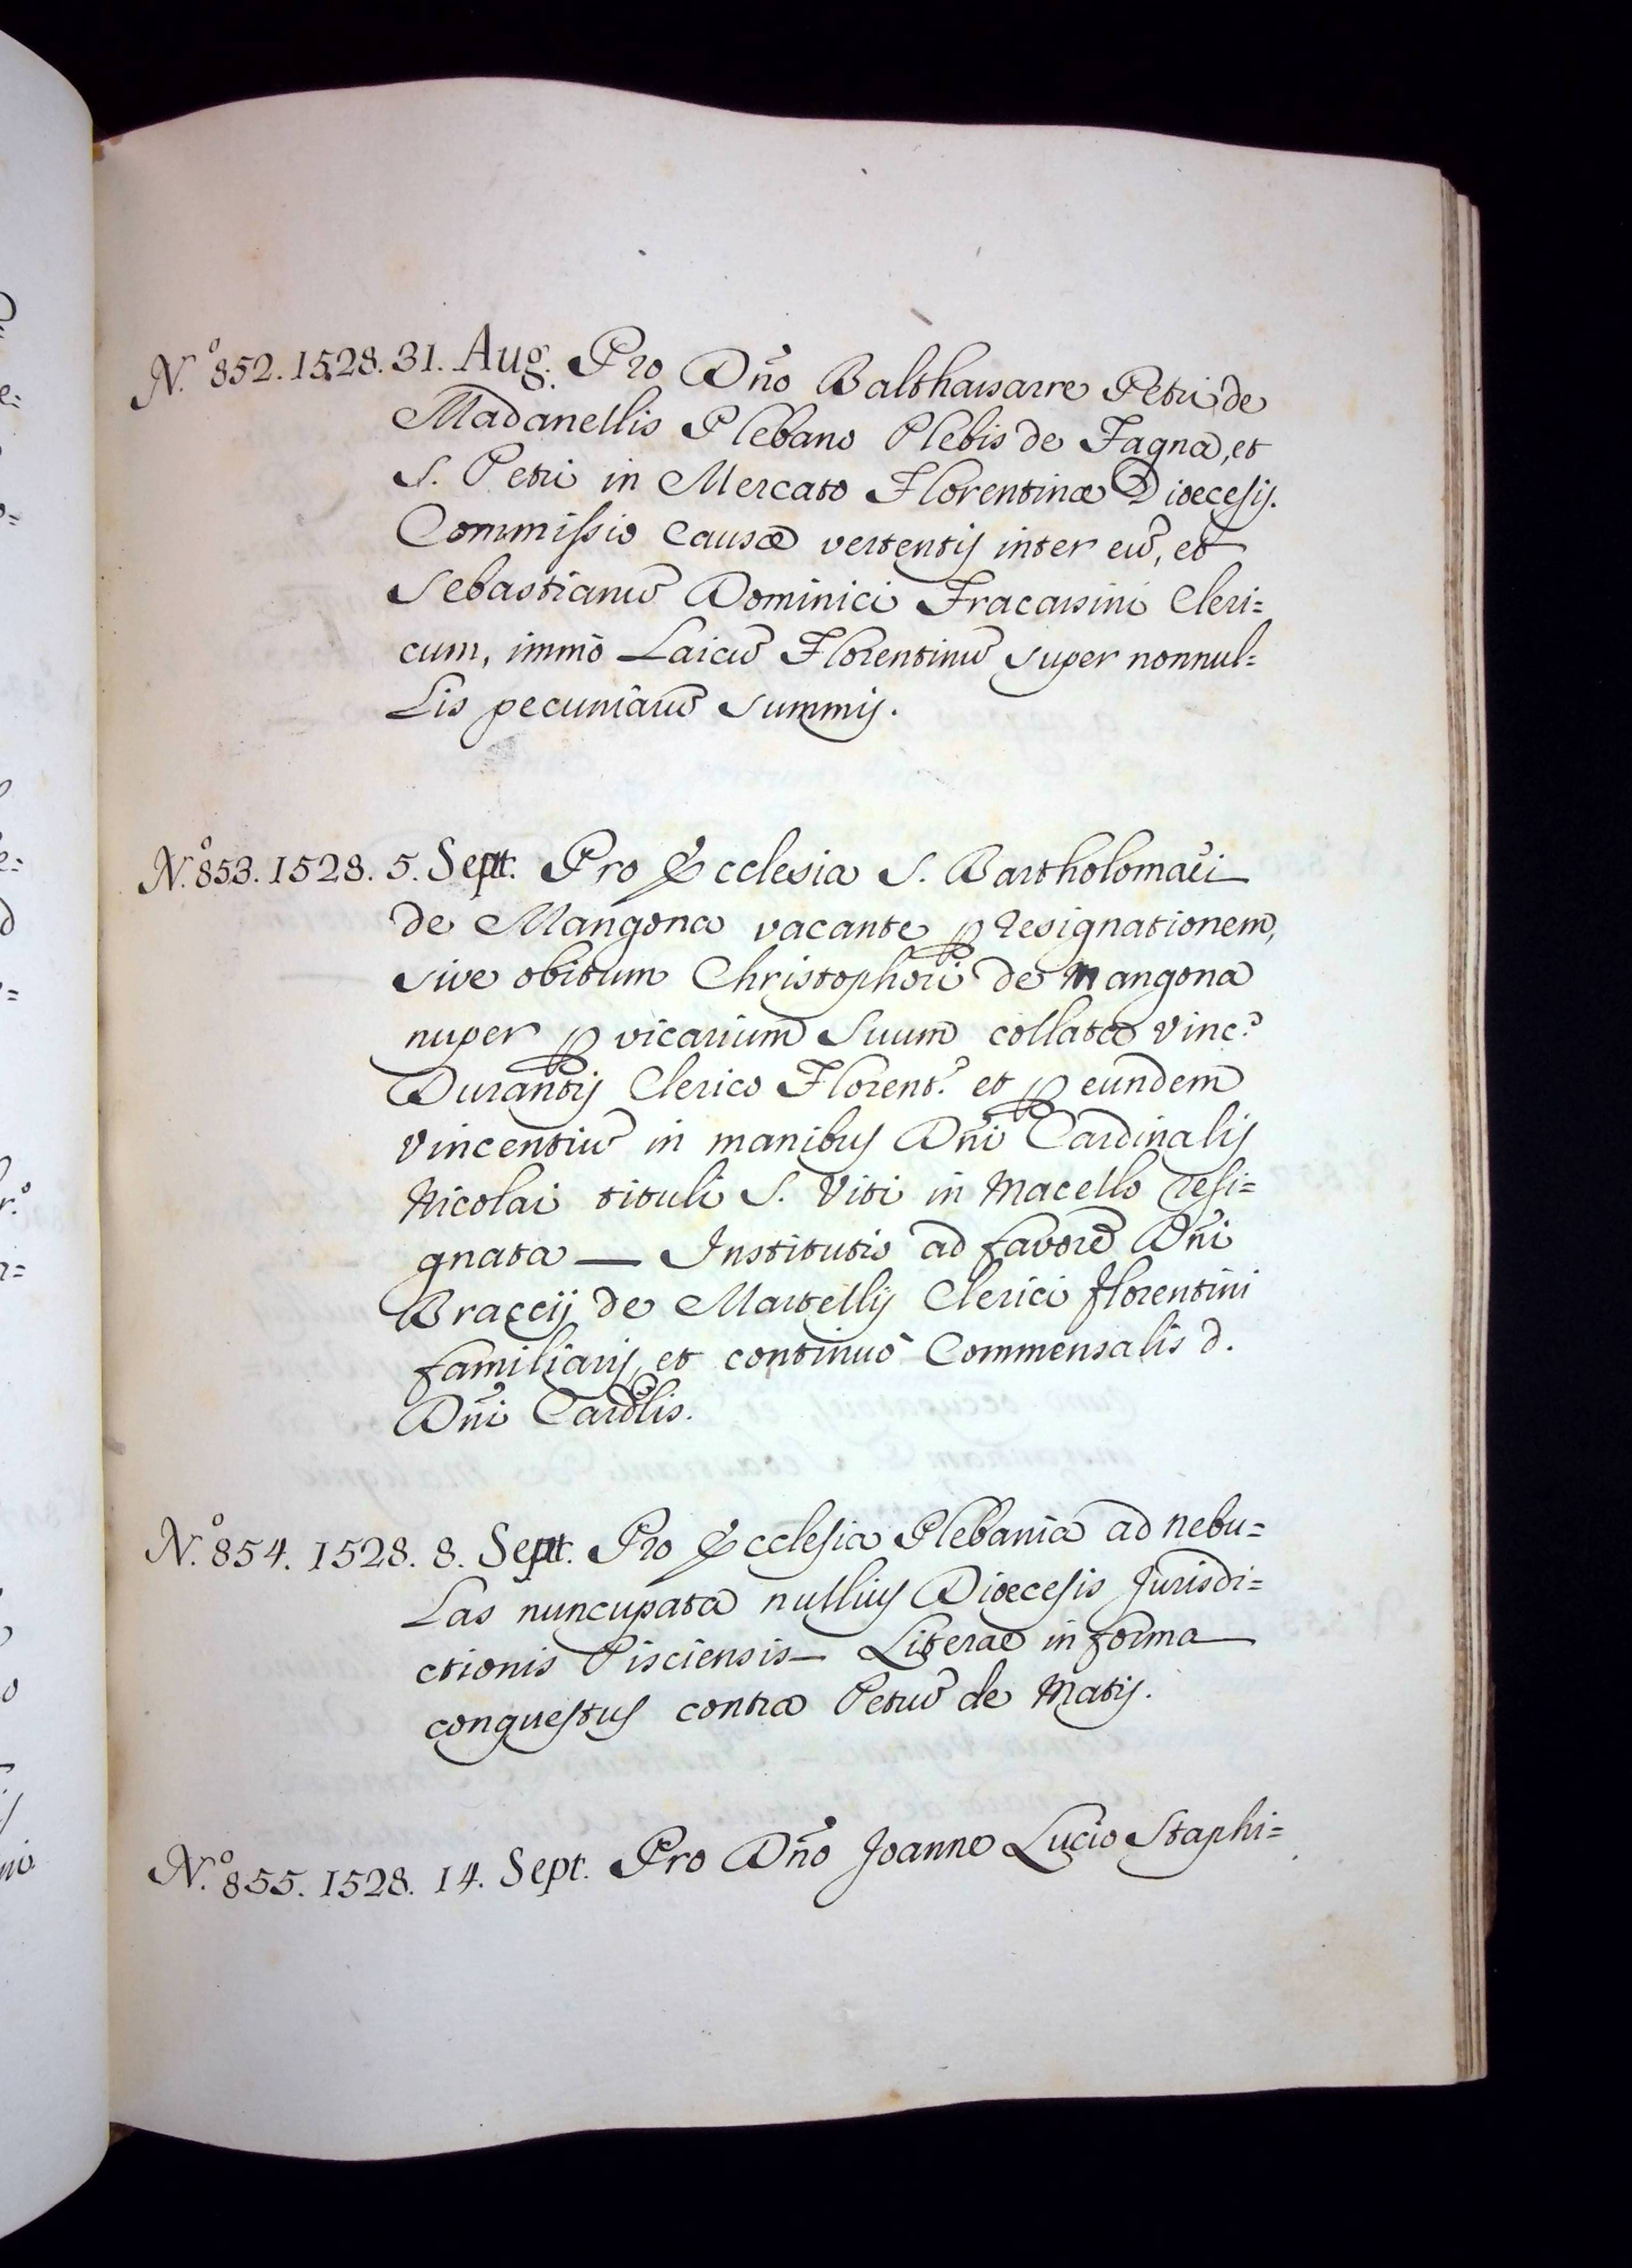 N.º 852. 1528. 31. Aug. Pro Dño Balthassarre Petri de
Madanellis Plebano Plebis de Fagna, et
S. Petri in Mercato Florentinæ Dioecesis.
Commissio Causæ vertentis inter eũ, et
Sebastianũ Dominici Fracassini Cleri=
cum, immò Laicũ Florentinũ super nonnul=
lis pecuniarũ summis.
N.º 853. 1528. 5. Sept. Pro Ecclesia S. Bartholomæi
de Mangona vacante ꝑ resignationem,
sive obitum Christophori de Mangona
nuper ꝑ vicarium suum collata Vinc.º
Durantis Clerico Florent.º et ꝑ eundem
Vincentiũ in manibus Dñi Cardinalis
Nicolai tituli S. Viti in Macello resi=
gnata — Institutio ad favorẽ Dñi
Braccij de Martellis Clerici florentini
familiaris, et continuò Commensalis d.
Dñi Cardlis.
N.º 854. 1528. 8. Sept. Pro Ecclesia Plebania ad nebu=
las nuncupata nullius Dioecesis Jurisdi=
ctionis Pisciensis — Literae in forma
conquestus contra Petrũ de Matis.
N.º 855. 1528. 14. Sept. Pro Dño Joanne Lucio Staphi=